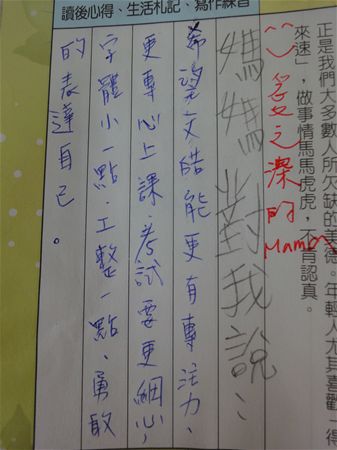 讀後心得、生活札記、寫作練習
正是我們大多數人所欠缺的美德。年輕人尤其喜歡「得
來速」，做事情馬馬虎虎，不肯認真。
之深的 Mama
媽媽對我說：
希望文皓能更有專注力、
更專心上課、考試要更細心、
字體小一點、工整一點、勇敢
的表達自己。